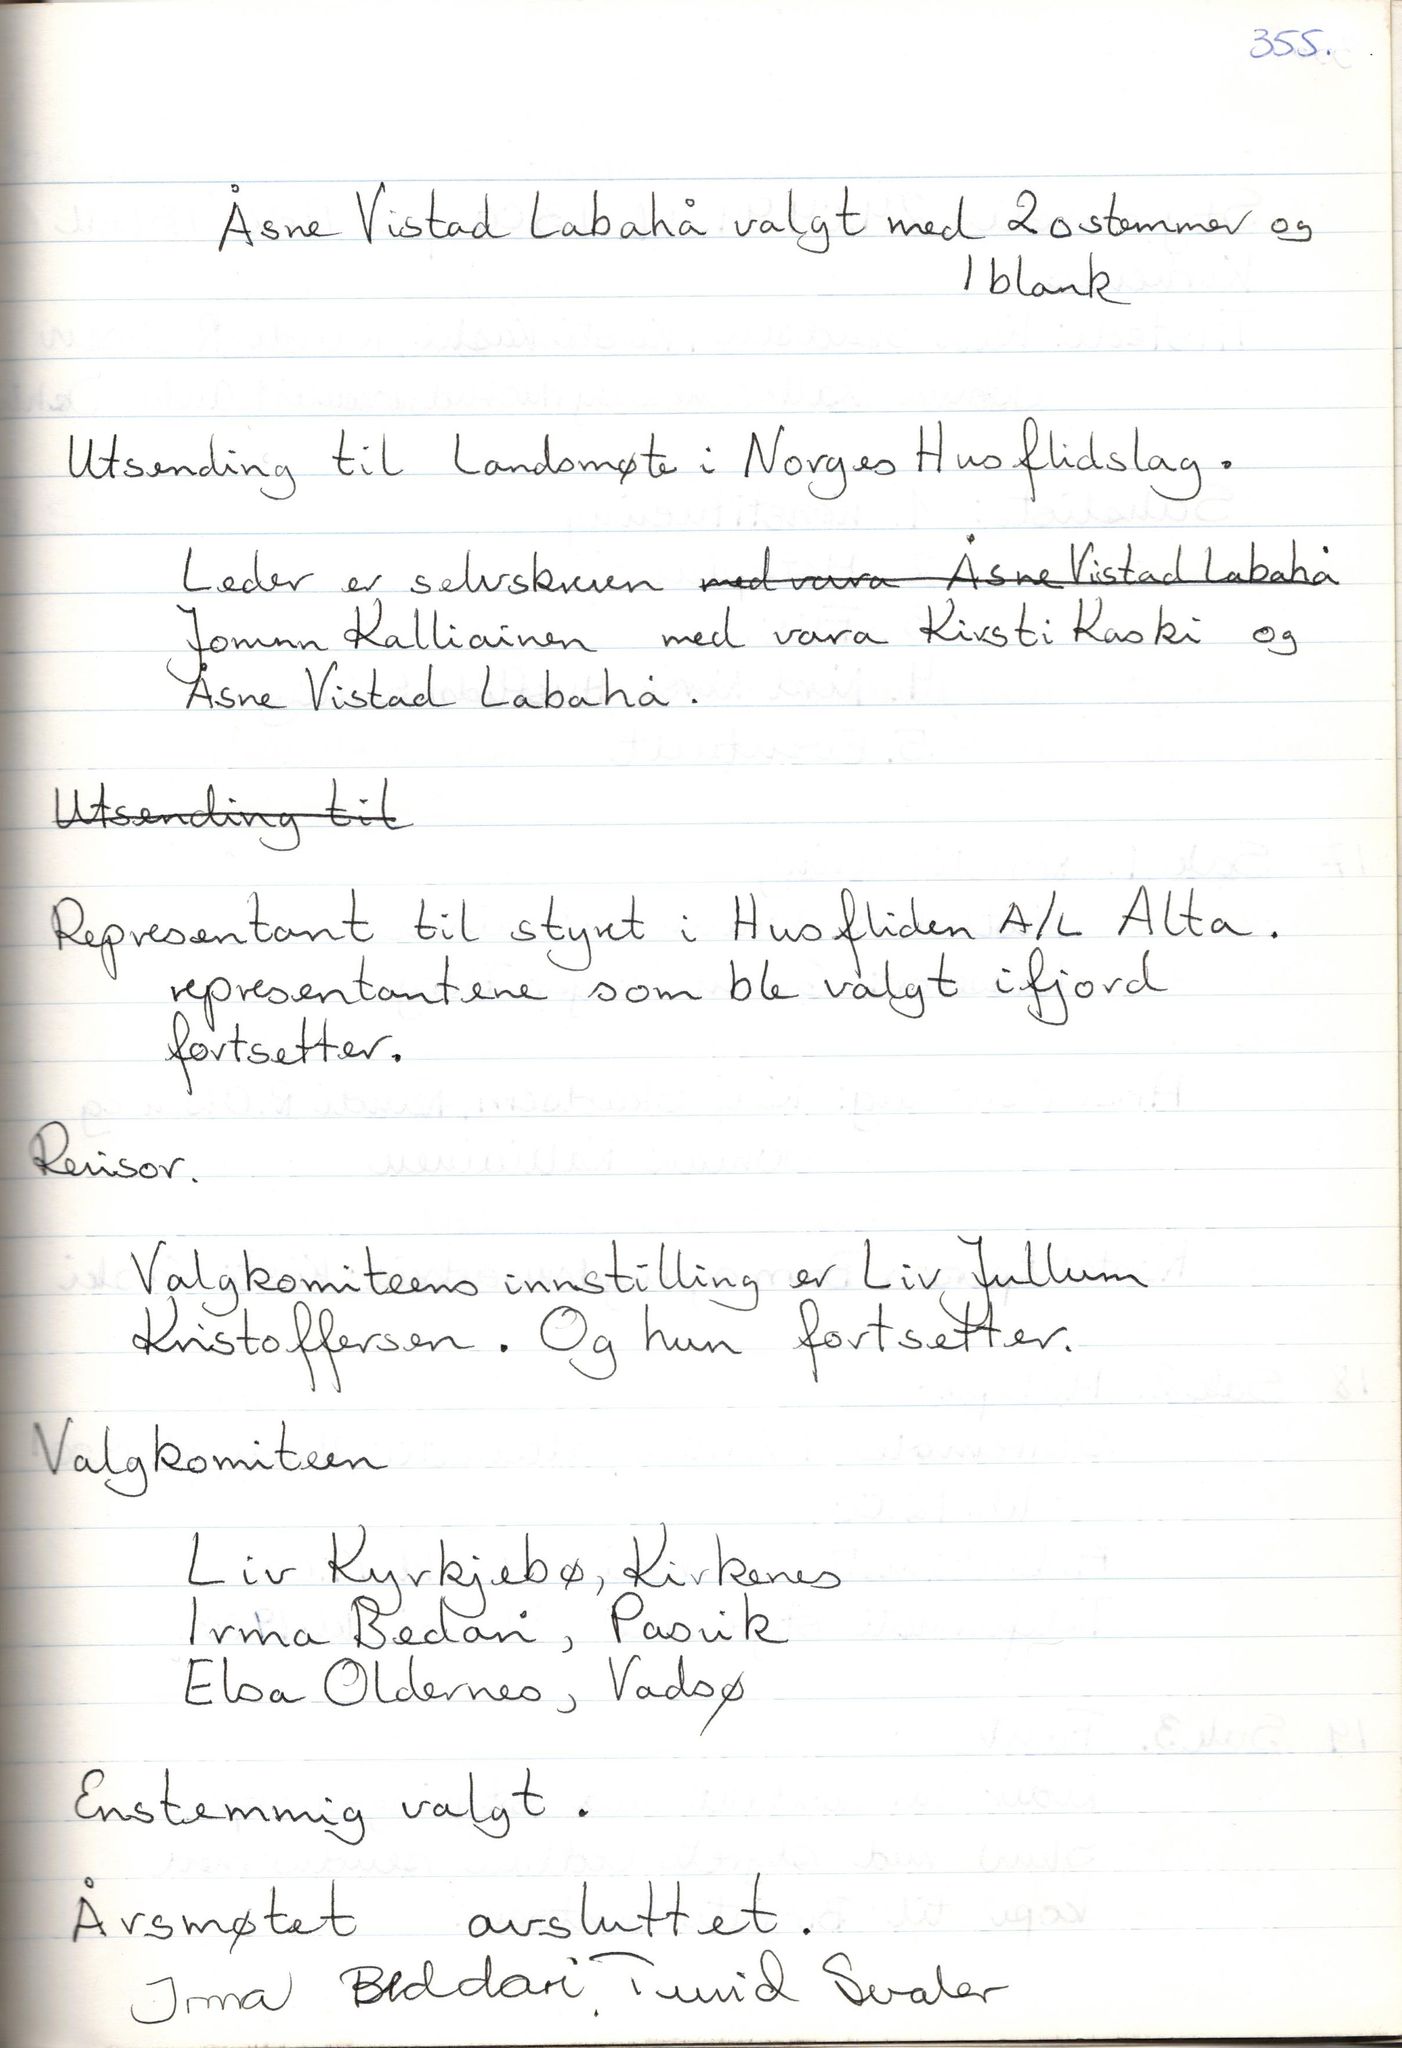 355.
Åsne Vistad Labahå valgt med 20 stemmer og
1 blank
Utsending til Landsmøte i Norges Husflidslag.
Leder er selvskreven med vara Åsne Vistad Labahå
Jorunn Kalliainen med vara Kirsti Kaski og
Åsne Vistad Labahå.
Utsending til
Representant til styret i Husfliden A/L Alta.
representantene som ble valgt ifjord
fortsetter.
Revisor.
Valgkomiteens innstilling er Liv Jullum
Kristoffersen. Og hun fortsetter.
Valgkomiteen
Liv Kyrkjebø, Kirkenes
Irma Bedari, Pasvik
Elsa Oldernes, Vadsø
Enstemmig valgt.
Årsmøtet avsluttet.
Irma Beddari. Turid Svaler